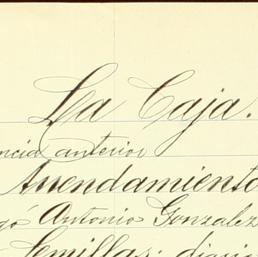 La Caja.
ncia anterior
Arrendamiento
gó Antonio Gonzalez
Semillas: